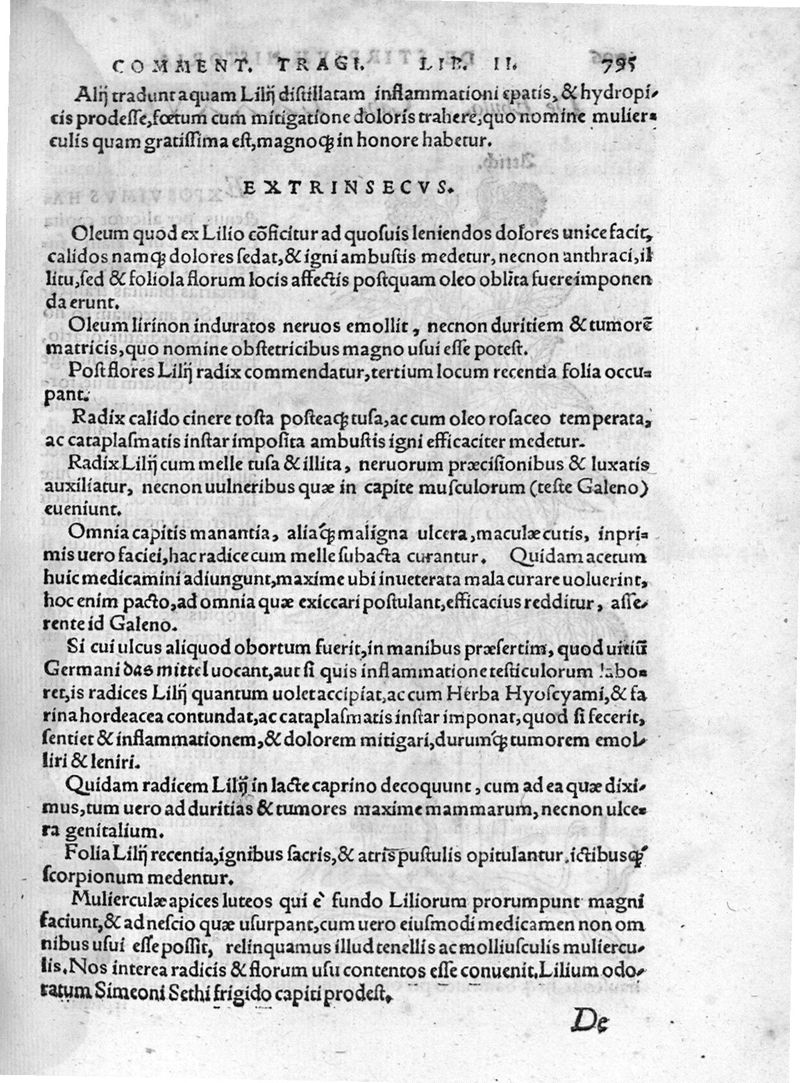 COMMENT. TRAGI. LIB. II. 795
Alij tradunt aquam Lilij distillatam inflammationi epatis, & hydropi-
cis prodesse, fœtum cum mitigatione doloris trahere, quo nomine mulier-
culis quam gratissima est, magnoq; in honore habetur.
EXTRINSECVS.
Oleum quod ex Lilio cōficitur ad quosuis leniendos dolores unice facit,
calidos namq; dolores sedat, & igni ambustis medetur, necnon anthraci, il
litu, sed & foliola florum locis affectis postquam oleo oblita fuere imponen
da erunt.
Oleum lirinon induratos neruos emollit, necnon duritiem & tumorē
matricis, quo nomine obstetricibus magno usui esse potest.
Post flores Lilij radix commendatur, tertium locum recentia folia occu-
pant.
Radix calido cinere tosta posteaq; tusa, ac cum oleo rosaceo temperata,
ac cataplasmatis instar imposita ambustis igni efficaciter medetur.
Radix Lilij cum melle tusa & illita, neruorum præcisionibus & luxatis
auxiliatur, necnon uulneribus quæ in capite musculorum (teste Galeno)
eueniunt.
Omnia capitis manantia, aliaq; maligna ulcera, maculæ cutis, inpri-
mis uero faciei, hac radice cum melle subacta curantur. Quidam acetum
huic medicamini adiungunt, maxime ubi inueterata mala curare uoluerint,
hoc enim pacto, ad omnia quæ exiccari postulant, efficacius redditur, asse-
rente id Galeno.
Si cui ulcus aliquod obortum fuerit, in manibus præsertim, quod uitiū
Germani das mittel uocant, aut si quis inflammatione testiculorum labo-
ret, is radices Lilij quantum uolet accipiat, ac cum Herba Hyoscyami, & fa
rina hordeacea contundat, ac cataplasmatis instar imponat, quod si fecerit,
sentiet & inflammationem, & dolorem mitigari, durumq; tumorem emol-
liri & leniri.
Quidam radicem Lilij in lacte caprino decoquunt, cum ad ea quæ dixi-
mus, tum uero ad duritias & tumores maxime mammarum, necnon ulce-
ra genitalium.
Folia Lilij recentia, ignibus sacris, & atris pustulis opitulantur. ictibusq;
scorpionum medentur.
Mulierculæ apices luteos qui è fundo Liliorum prorumpunt magni
faciunt, & ad nescio quæ usurpant, cum uero eiusmodi medicamen non om
nibus usui esse possit, relinquamus illud tenellis ac molliusculis muliercu-
lis. Nos interea radicis & florum usu contentos esse conuenit. Lilium odo-
ratum Simeoni Sethi frigido capiti prodest.
De